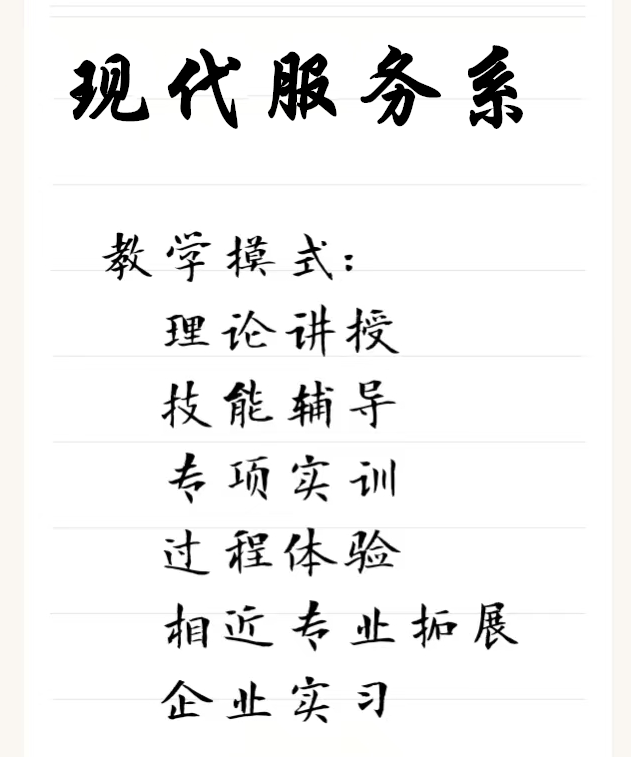 现代服务系
教学模式：
理论讲授
技能辅导
专项实训
过程体验
相近专业拓展
企业实习